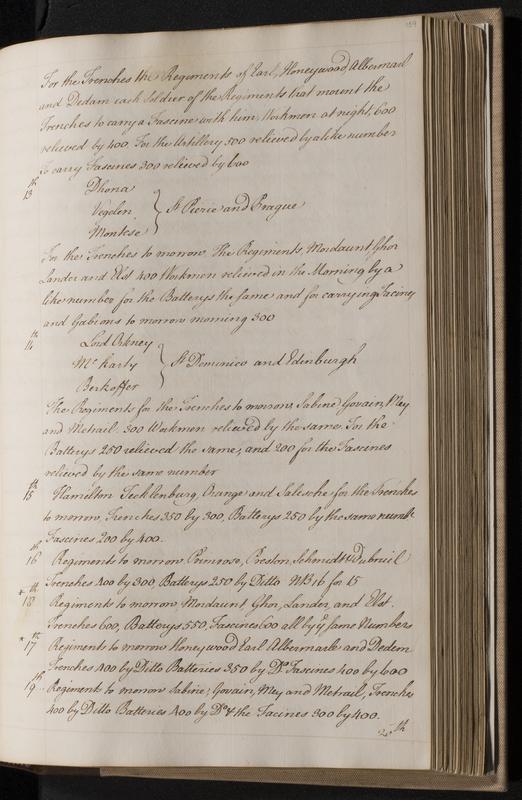 For the Trenches the Regiments of Earl, Honeywood, Albermarl
and Dedam each Soldier of the Regiments that mount the
Trenches to carry a Fascine with him, Workmen at night, 600
relieved by 400. For the Artillery 300 relieved by alike number
To carry Fascines 300 relieved by 600
13th Dhona
Vegelen } St Pierie and Prague
Montese
For the Trenches to morrow, The Regiments, Mordaunt, Ghor
Lander and Elst 400 Workmen relieved in the Morning by a
like number for the Batterys the same and for carrying Facines
and Gabions to morrow morning 300
14th Lord Orkney
Mc Karty } St Dominico and Edinburgh
Berkoffer
The Regiments for the Trenches to morrow, Sabine, Govain, Mey
and Metrail, 300 Workmen relieved by the same. For the
Batterys 250 relieved the same, and 200 for the Fascines
relieved by the same number
15th Hamilton Tecklenburg, Orange and Salesche for the Trenches
to morrow, Trenches 350 by 300, Batterys 250 by the same numbr
Fascines 200 by 400.
16th Regiments to morrow Primrose, Preston, Schmidt & Dubruil
Trenches 400 by 300, Batterys 250 by Ditto NB 16 for 15
* 18th Regiments to morrow, Mordaunt Ghor, Lander, and Elst.
Trenches 600, Batterys 550, Fascines 600 all by ye same Numbers
* 17th Regiments to morrow Honeywood Earl Albermarle and Dedem
Trenches 400 by Ditto Batteries 350 by Do Fascines 400 by 600
19th Regiments to morrow Sabine, Govain, Mey and Metrail, Trenches
400 by Ditto Batteries 400 by Do & the Facines 300 by 400.
20th